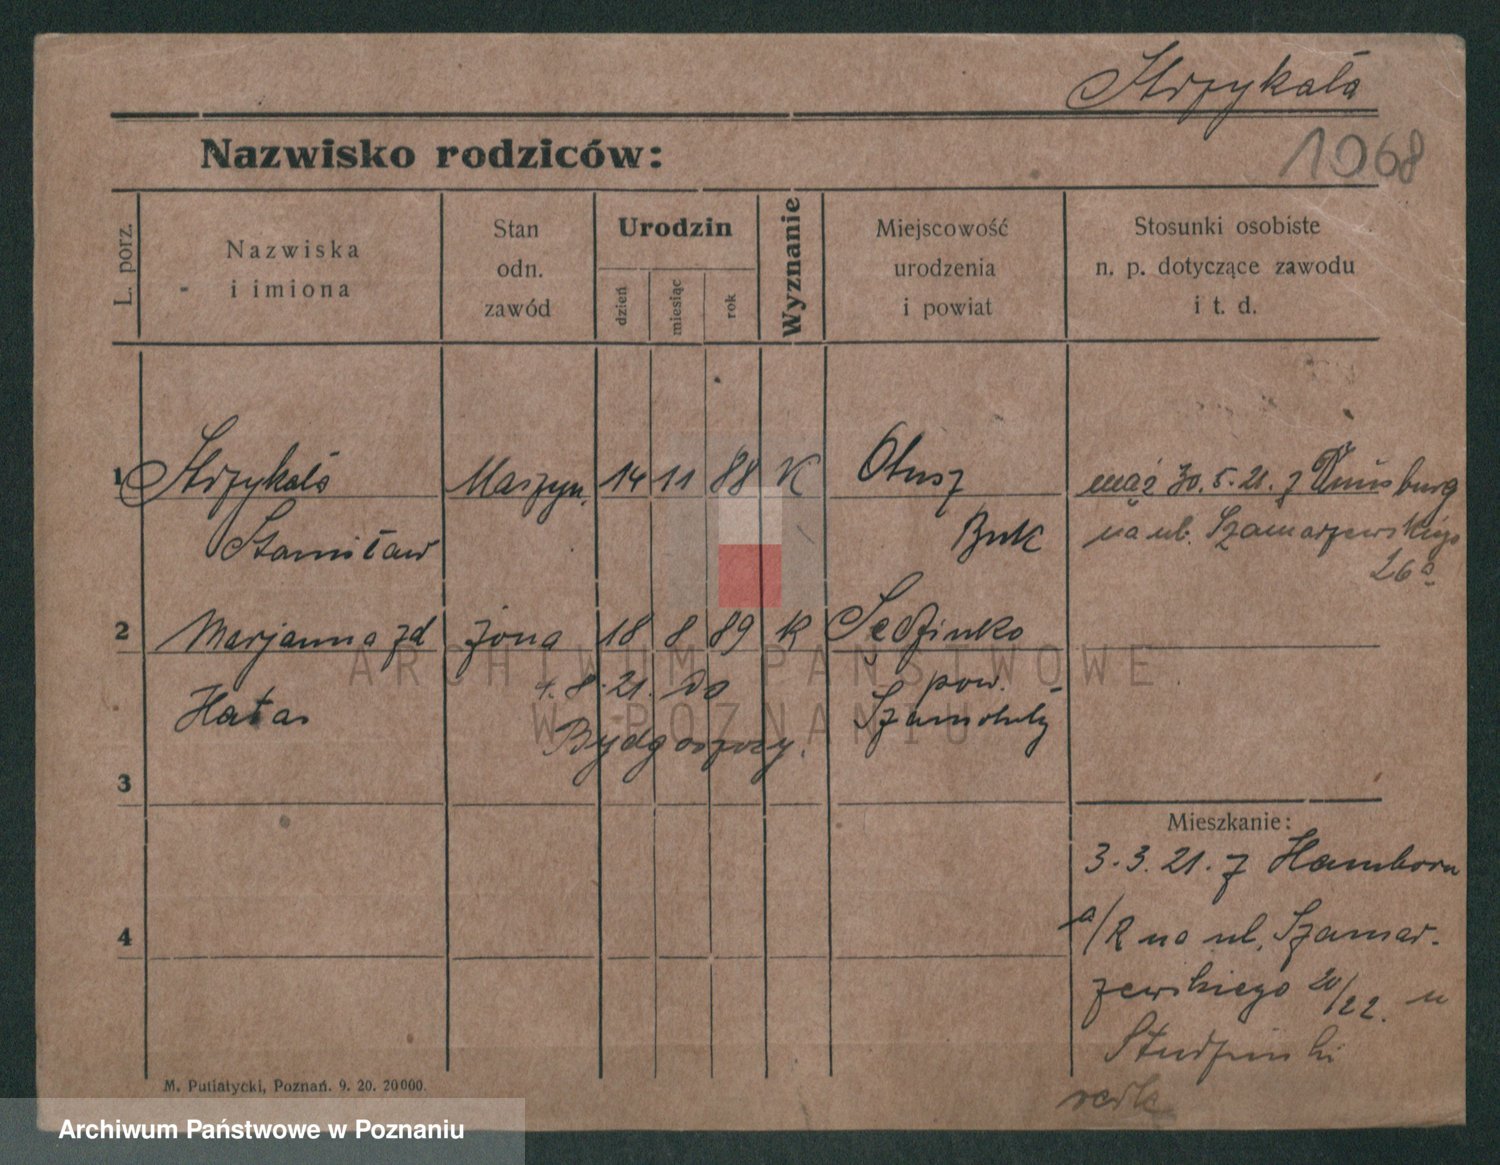 Strzykała
Nazwisko rodziców:
1068
L. porz.
Nazwiska
i imiona
Stan
odn.
zawód
Urodzin
dzień
miesiąc
rok
Wyznanie
Miejscowość
urodzenia
i powiat
Stosunki osobiste
n. p. dotyczące zawodu
i t. d.
1 Strzykała Maszyn. 14 11 88 K Otusz mąż 30. 5. 21. z Duisburg
Stanisław Buk na ul. Szamarzewskiego
26a
2 Marjanna zd żona 18 8 89 K Sędzinko
Hałas 1. 8. 21. do pow.
Bydgoszczy. Szamotuły
3
Mieszkanie:
3. 3. 21. z Hamborn
a/R na ul. Szamar-
zewskiego 20/22. u
4
M. Putiatycki, Poznań. 9. 20. 20000.
ARCHIWUM PAŃSTWOWE
W POZNANIU
Archiwum Państwowe w Poznaniu